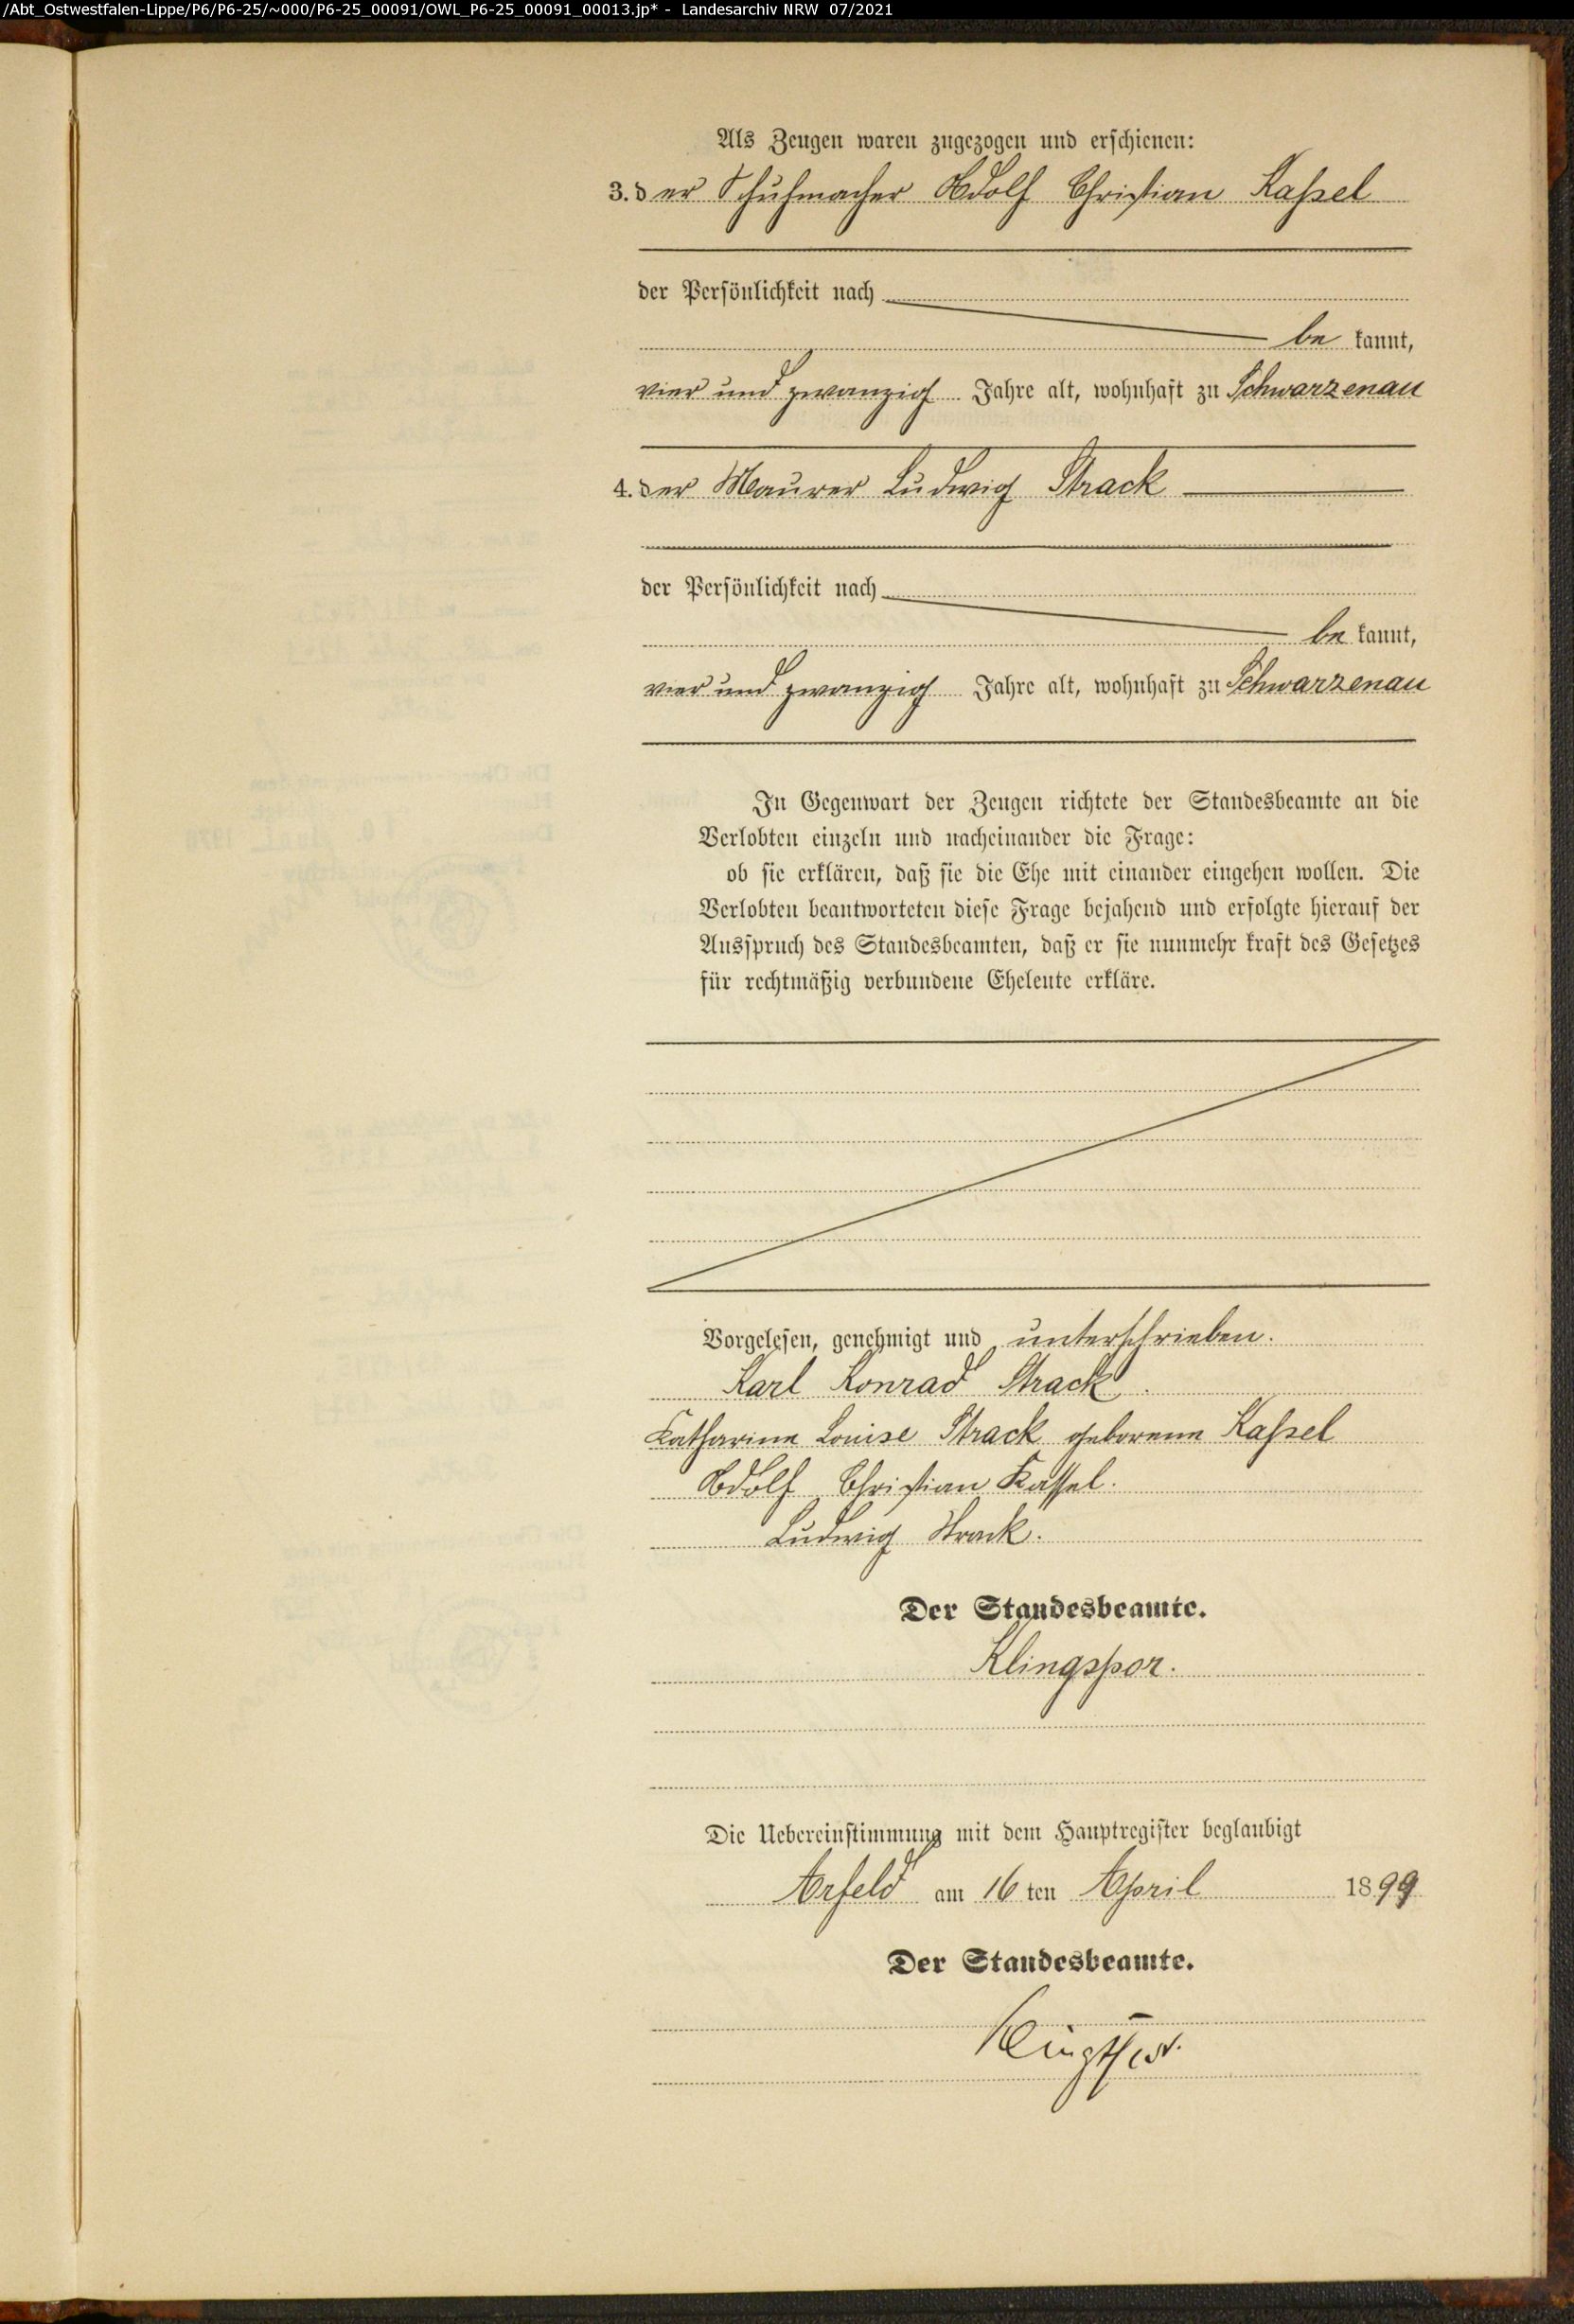 /Abt_Ostwestfalen-Lippe/P6/P6-25/~000/P6-25_00091/OWL_P6-25_00091_00013.jp* - Landesarchiv NRW 07/2021
Als Zeugen waren zugezogen und erschienen:
3. der Schuhmacher Adolf Christian Kaßel
der Persönlichkeit nach
be kannt,
vier und zwanzig Jahre alt, wohnhaft zu Schwarzenau
4. der Maurer Ludwig Strack
der Persönlichkeit nach
be kannt,
vier und zwanzig Jahre alt, wohnhaft zu Schwarzenau
In Gegenwart der Zeugen richtete der Standesbeamte an die
Verlobten einzeln und nacheinander die Frage:
ob sie erklären, daß sie die Ehe mit einander eingehen wollen. Die
Verlobten beantworteten diese Frage bejahend und erfolgte hierauf der
Ausspruch des Standesbeamten, daß er sie nunmehr kraft des Gesetzes
für rechtmäßig verbundene Eheleute erkläre.
Vorgelesen, genehmigt und unterschrieben.
Karl Konrad Strack.
Katharine Louise Strack geborene Kaßel
Adolf Christian Kassel.
Ludwig Strack.
Der Standesbeamte.
Klingspor.
Die Uebereinstimmung mit dem Hauptregister beglaubigt
Arfeld am 16 ten April 1899
Der Standesbeamte.
Klingspor.